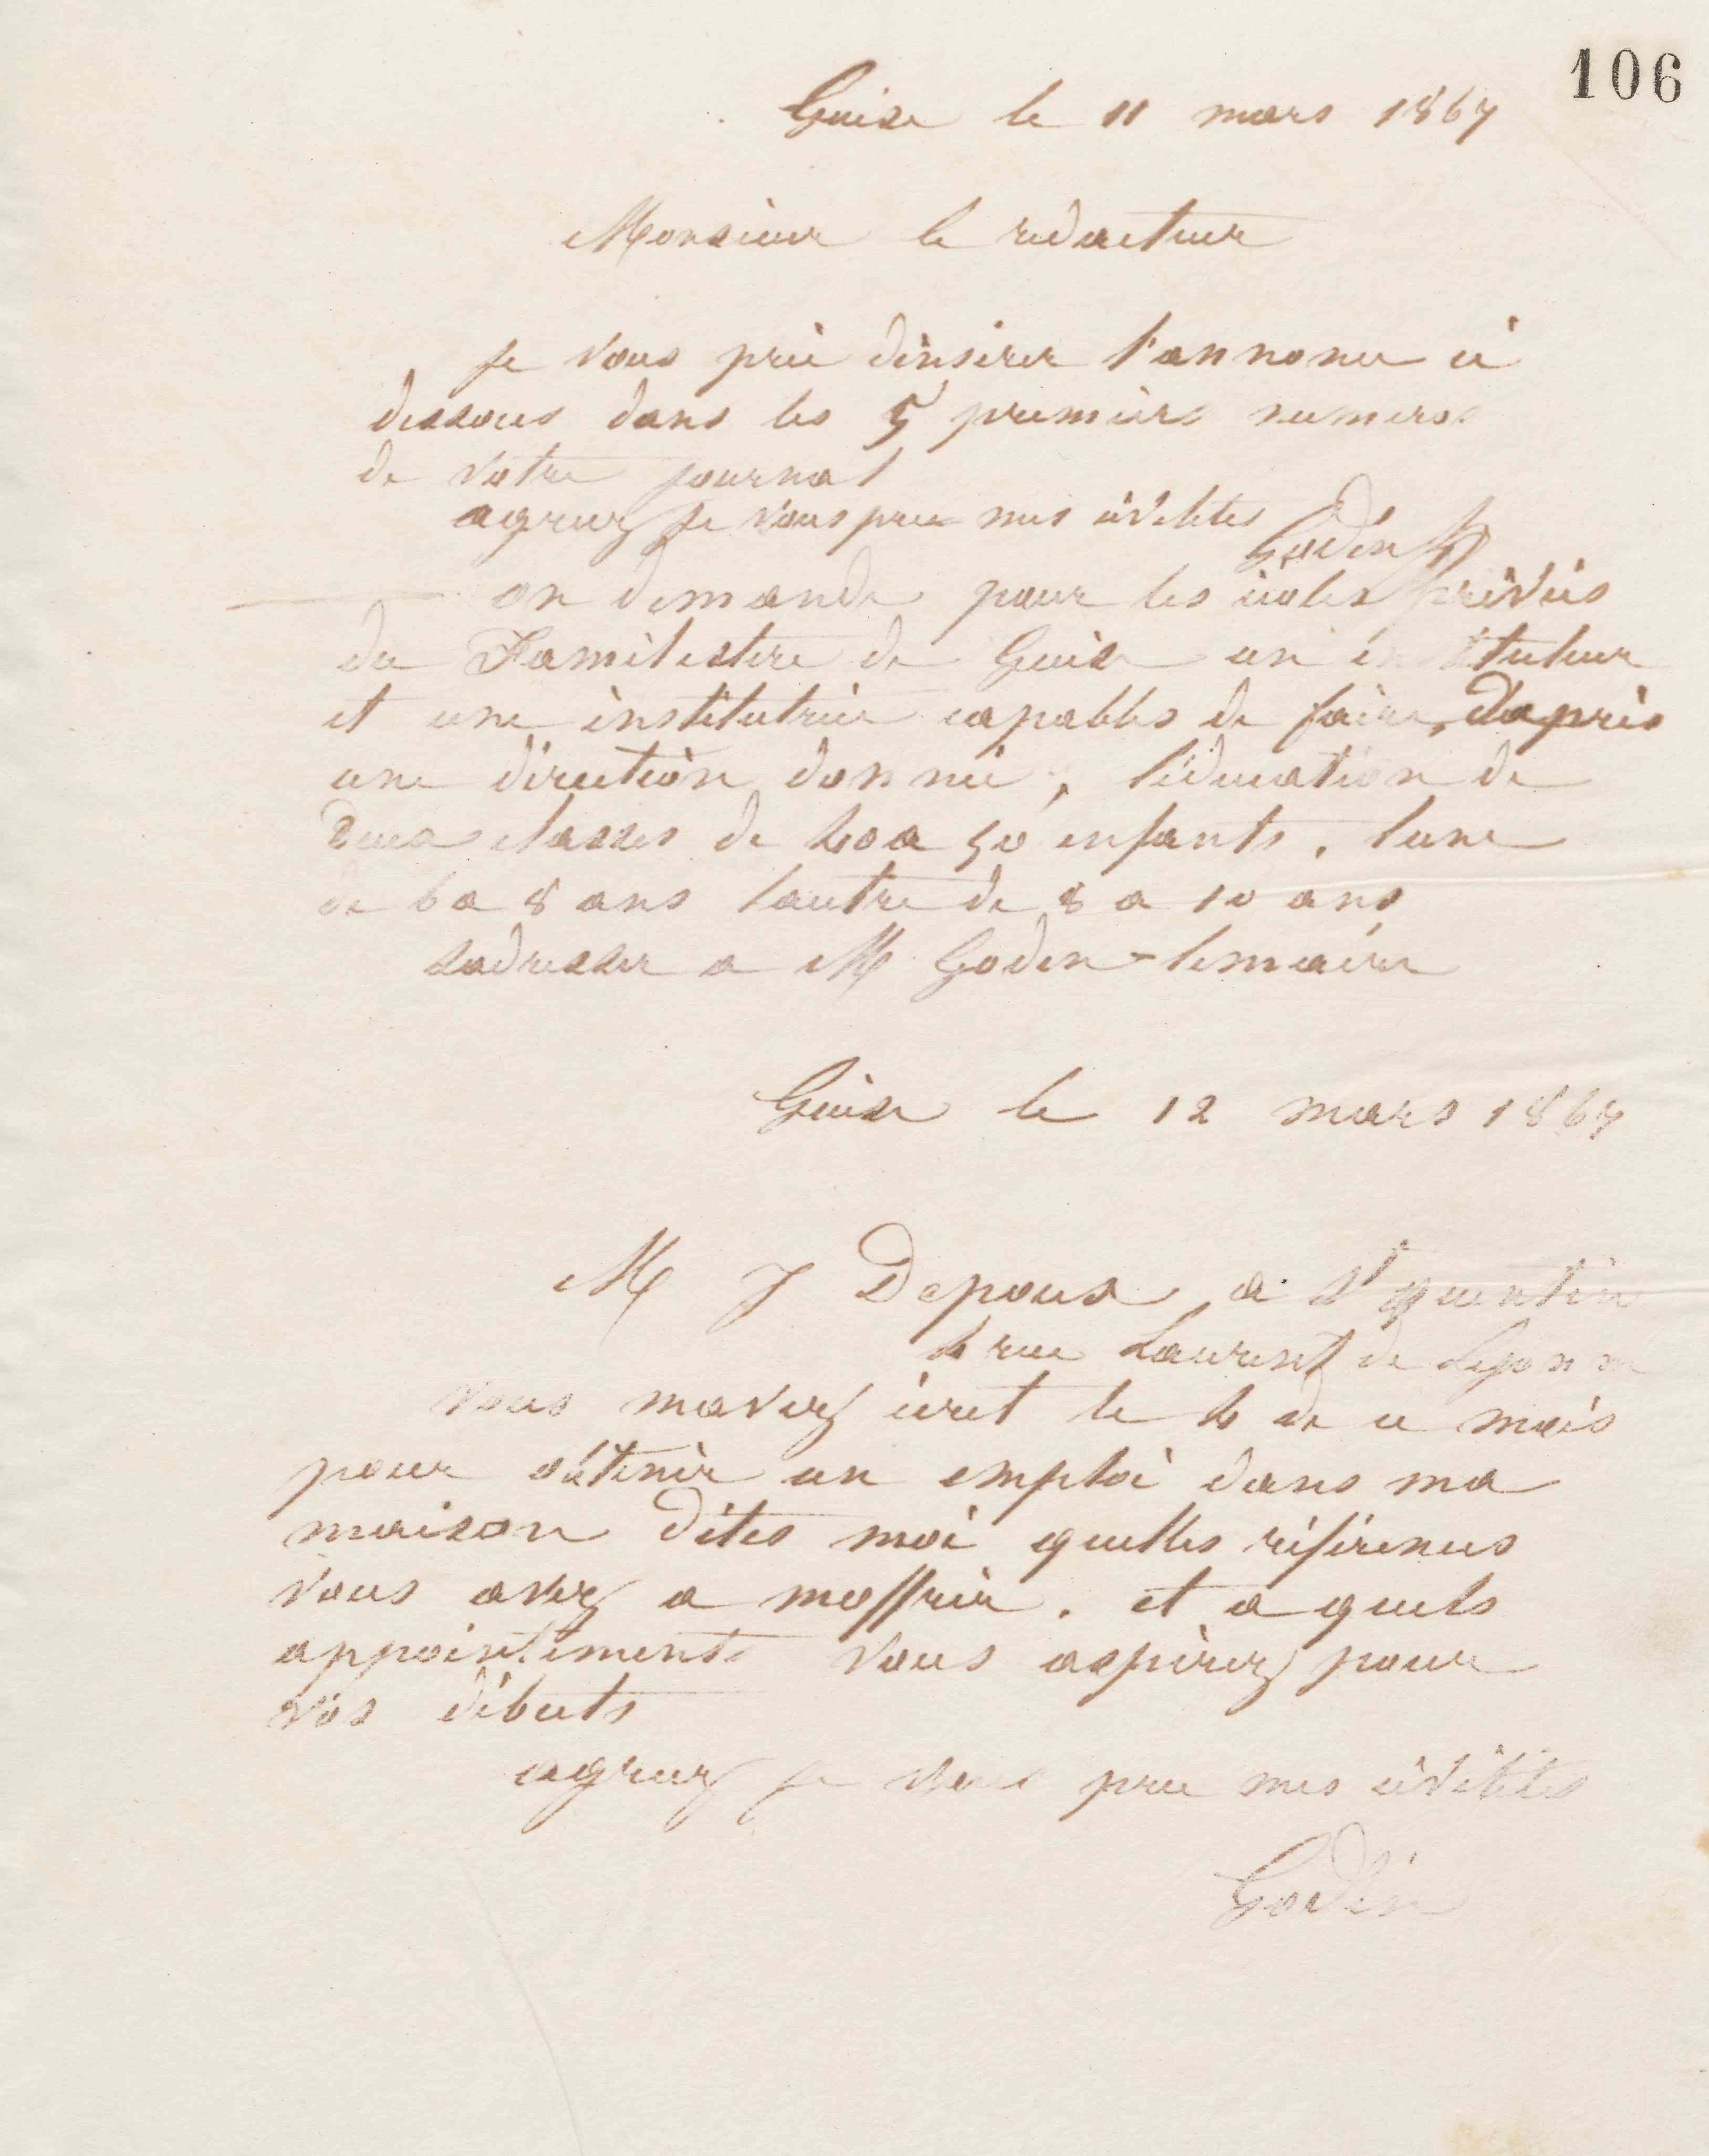 106
Guise le 11 mars 1867
Monsieur le redacteur
Je vous prie d'inserer l'annonce ci
dessous dans les 5 premiers numeros
de votre journal
agreez je vous prie mes civilités
Godin
on demande pour les écoles privées
du Familistere de Guise un instituteur
et une institutrice capables de faire, d'après
une direction donnée, l'éducation de
deux classes de 40 a 50 enfants, lune
de 6 a 8 ans lautre de 8 a 10 ans
sadresser a M Godin-lemaire
Guise le 12 mars 1867
M J Depoux a St quentin
4 rue Laurent de
vous mavez écrit le 4 de ce mois
pour obtenir un emploi dans ma
maison dites moi quelles références
vous avez a moffrir. et a quels
appointements vous aspirez pour
vos débuts
agreez je vous prie mes civilités
Godin